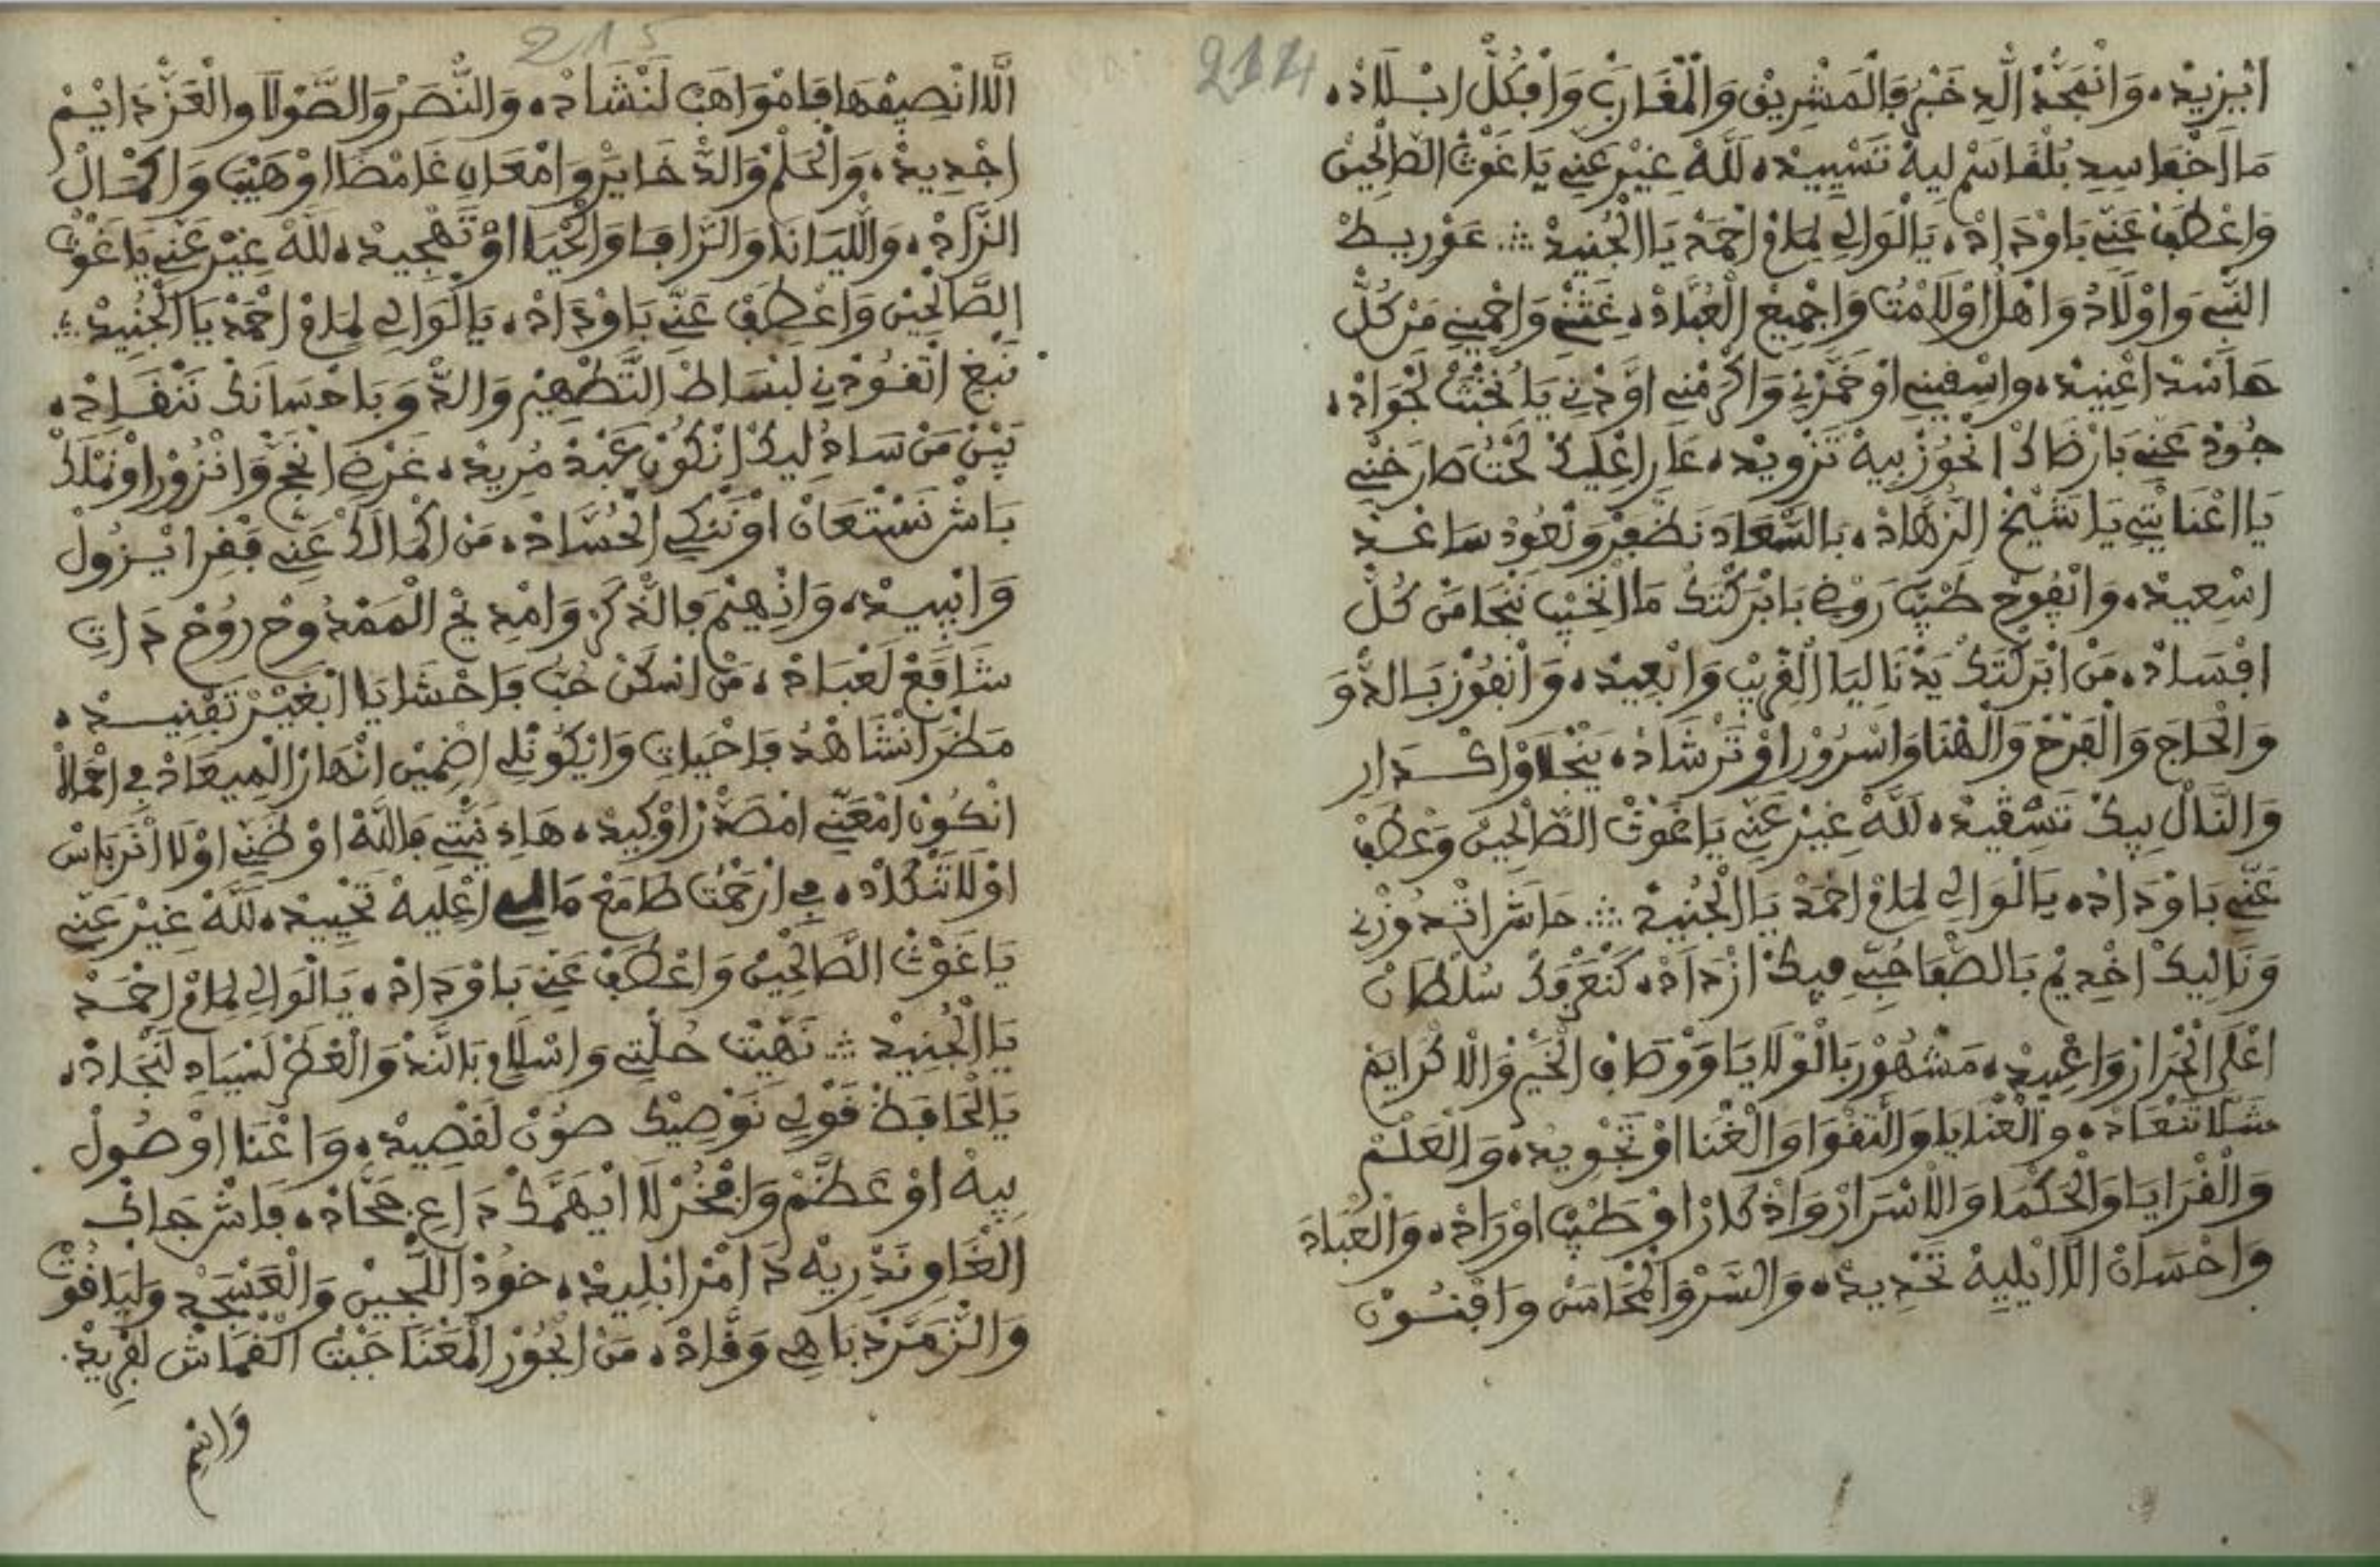 214
ابزيد، وانمجد الد خبر فالمشريق والمغارب وافكل ابلاد،
ما اخفا سيد بلقاسم ليه تسييد، لله غير عني ياغوث الصالحين
واعطف عني باوداد، يالوالي لماع احمد يا الجنيد ؞ عوريط
النبي واولاد واهل اولامت واجميع العباد، غثني واحميني من كل
هاسد اعنيد، واسقيني اوخمرني واكرمني اودني يا نخبت لجواد،
جود عني بارضاك انحوز بيه تزويد، عار اعليك لحت طارحني
يا اعنايتي يا شيخ الزهاد، بالسعاد نظفر ونعود ساعد
اسعيد، وانفوح طيب روض بابركتك ما انخيب ننجا من كل
افساد، من ابركتك يدنا ليا القريب وابعيد، وانفوز بالدو
والحاج والفرح والهنا واسرور او ترشاد، ينجلاو اكدار
والنال بيك تسقيد، لله غير عني ياغوث الصالحين وعطف
عني باوداد، يالوالي لماع احمد يا الجنيد ؞ حاشر اتدوزني
وناليك اخديم بالصفا حبي فيك ازداد، كنعرفك سلطان
اعلى الحرار واعبيد، مشهور بالولايا ووصاف الخير والاكرايم
شلا تنعاد، والعنايا والتقوا والغنا اوتجويد، والعلم
والقرايا والحكما والاسرار واذكار اوطيب اوراد، والعباد
واحسان الا ايليه تحديد، والسر والمحاسن وافنون
215
الا انصيفها فامواهب لنشاد، والنصر والصولا والعز دايم
اجديد، والحلم والدخاير وامعان غامضا اوهيب واكمال
الزاد، والليانا والزافا والحيا اوتهجيد، لله غير عني ياغوث
الصالحين واعطف عني باوداد، يالوالي لماع احمد يا الجنيد ؞
نبغ اتقودني لبساط التطهير والدو باحسانك ننقاد،
بين من ساد ليك انكون عبد مريد، غرض انحج وانزور او نملك
باش نستعان اوننكي الحساد، من اكمالك عني فقر ايزول
وابيد، وانهيم فالذكر وامديح الممدوح روح دات
شافع لعباد، من اسكن حب فاحشايا ابغير تفنيد،
مطر انشاهد فاحيات وايكونلي اضمين انهار الميعاد في اعمالا
انكون امعني امصدر اوكيد، هاد نيتي فالله اوظني اولا انرياس
اولا تنكاد، في ارحمت طامع مالي اعليه تحييد، لله غير عني
ياغوث الصالحين واعطف عني باوداد، يالوالي لماع احمد
يا الجنيد ؞ نهيت حلتي واسلام بالند والعطر لسياد لنجاد،
يالحافظ قولي نوصيك صون لقصيد، واغنا اوصول
بيه اوعظم وافخر لا ايهمك داع جحاد، فاشر جاك
الغاو ندريه دامر ابليد، خود اللجين والعسجد ولياقوت
والزمرد باهي وقاد، من الحور المغنا جبت القماش لفريد.
وانم